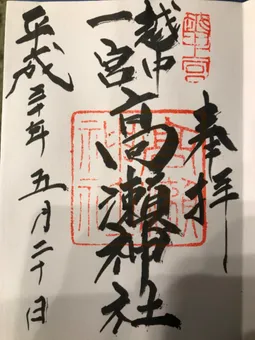 奉拝
越中
一宮
高瀬神社
平成三十年五月二十日